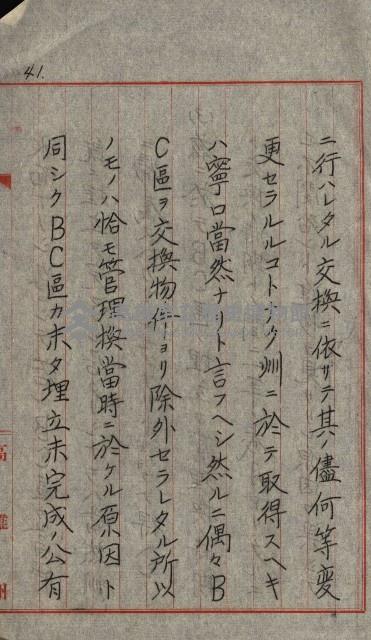 41.
ニ行ハレタル交換ニ依リテ其ノ儘何等変
更セラルルコトナク州ニ於テ取得スヘキ
ハ寧ロ當然ナリト言フヘシ然ルニ偶々B
C區ヲ交換物件ヨリ除外セラレタル所以
ノモノハ恰モ管理換當時ニ於ケル原因ト
同シクBC區カホタ埋立未完成ノ公有
高雄州